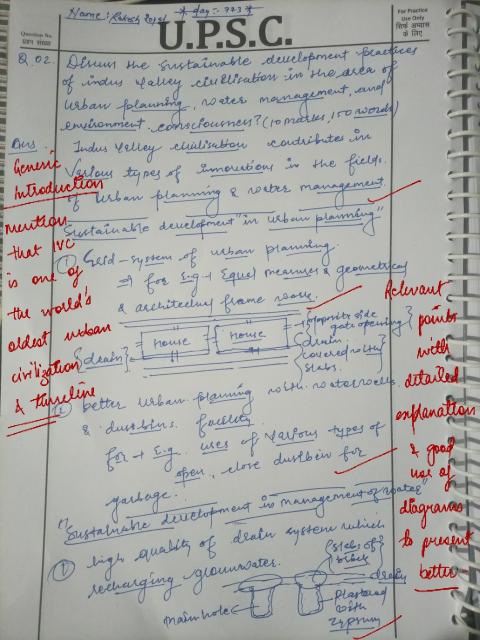 Name: Rakesh * Day :- 777 *
U.P.S.C.
Question No.
प्रश्न संख्या
For Practice
Use Only
सिर्फ अभ्यास
के लिए
Q.02. Discuss the sustainable development practices
of indus valley civilisation in the area of
urban planning, water management, and
environment consciousness? (10 marks, 150 words)
Ans: Indus valley civilisation contributes in
various types of innovations in the fields
of urban planning & water management.
Generic
Introduction
mention
that IVC
is one of
the world's
oldest urban
civilization
& timeline
"Sustainable development in urban planning"
① Grid-system of urban planning.
⇒ for E.g → Equal measures & geometrical
& architecture frame work.
House
House
{drain}
opposite side
gate opening
drain
covered with
slabs.
better urban planning with water wells
& dustbins facility
for → E.g. uses of various types of
open, close dustbin for
garbage.
Relevant
points
with
detailed
explanation
& good
use of
diagrams
to present
better
"Sustainable development in management of water"
① high quality of drain system which
recharging groundwater.
slabs of
drain
main hole
plastered
with
gypsum